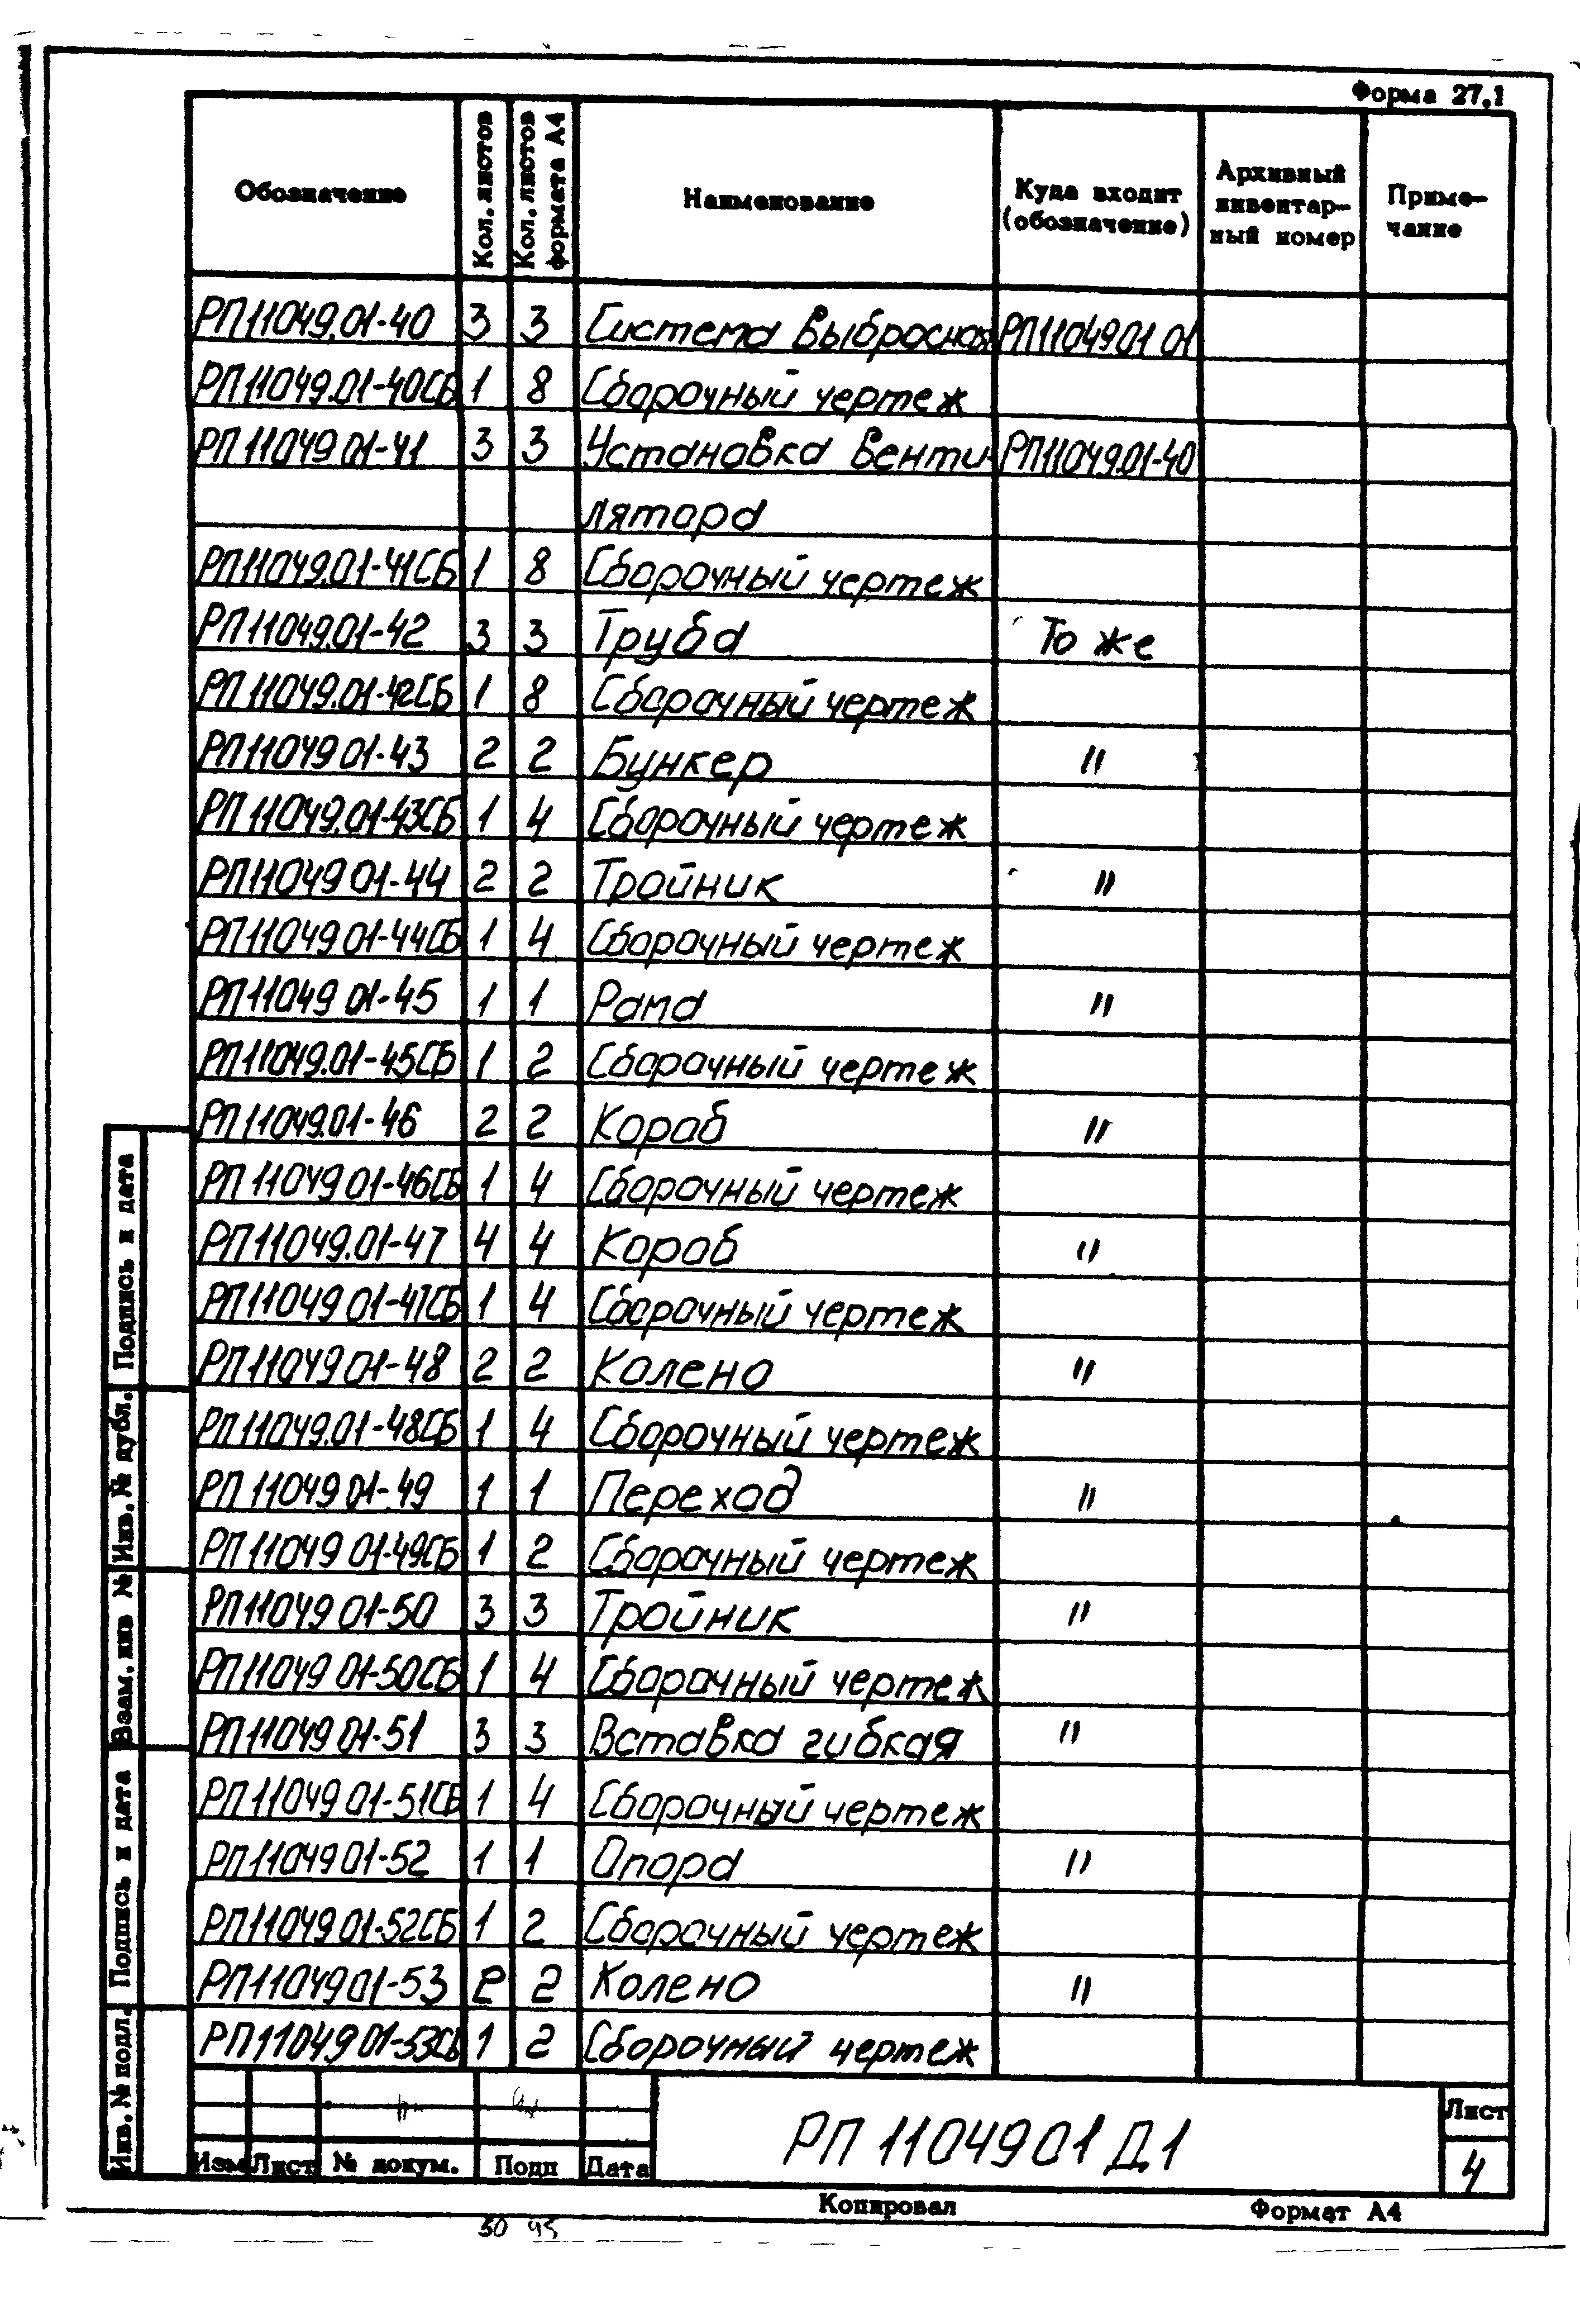 Форма 27.1
Обозначение Кол. листов Кол. листов формата А4 Наименование Куда входит (обозначение) Архивный инвентар-ный номер Приме-чание
РП11049.01-40 3 3 Система выбросная РП11049 01 01
РП11049.01-40СБ 1 8 Сборочный чертеж
РП11049.01-41 3 3 Установка венти- РП11049.01-40
лятора
РП11049.01-41СБ 1 8 Сборочный чертеж
РП11049.01-42 3 3 Труба То же
РП11049.01-42СБ 1 8 Сборочный чертеж
РП11049 01-43 2 2 Бункер "
РП11049.01-43СБ 1 4 Сборочный чертеж
РП11049 01-44 2 2 Тройник "
РП11049 01-44СБ 1 4 Сборочный чертеж
РП11049 01-45 1 1 Рама "
РП11049.01-45СБ 1 2 Сборочный чертеж
РП11049.01-46 2 2 Короб "
РП11049 01-46СБ 1 4 Сборочный чертеж
РП11049.01-47 4 4 Короб "
РП11049 01-47СБ 1 4 Сборочный чертеж
РП11049 01-48 2 2 Колено "
РП11049.01-48СБ 1 4 Сборочный чертеж
РП11049 01-49 1 1 Переход "
РП11049 01-49СБ 1 2 Сборочный чертеж
РП11049 01-50 3 3 Тройник "
РП11049 01-50СБ 1 4 Сборочный чертеж
РП11049 01-51 3 3 Вставка гибкая "
РП11049 01-51СБ 1 4 Сборочный чертеж
РП11049 01-52 1 1 Опора "
РП11049 01-52СБ 1 2 Сборочный чертеж
РП11049 01-53 2 2 Колено "
РП11049 01-53СБ 1 2 Сборочный чертеж
Подпись и дата
Инв. № дубл.
Взам. инв №
Подпись и дата
Инв. № подл.
Изм Лист № докум. Подп Дата
РП 11049 01 Д1
Лист
4
Копировал Формат А4
50 45